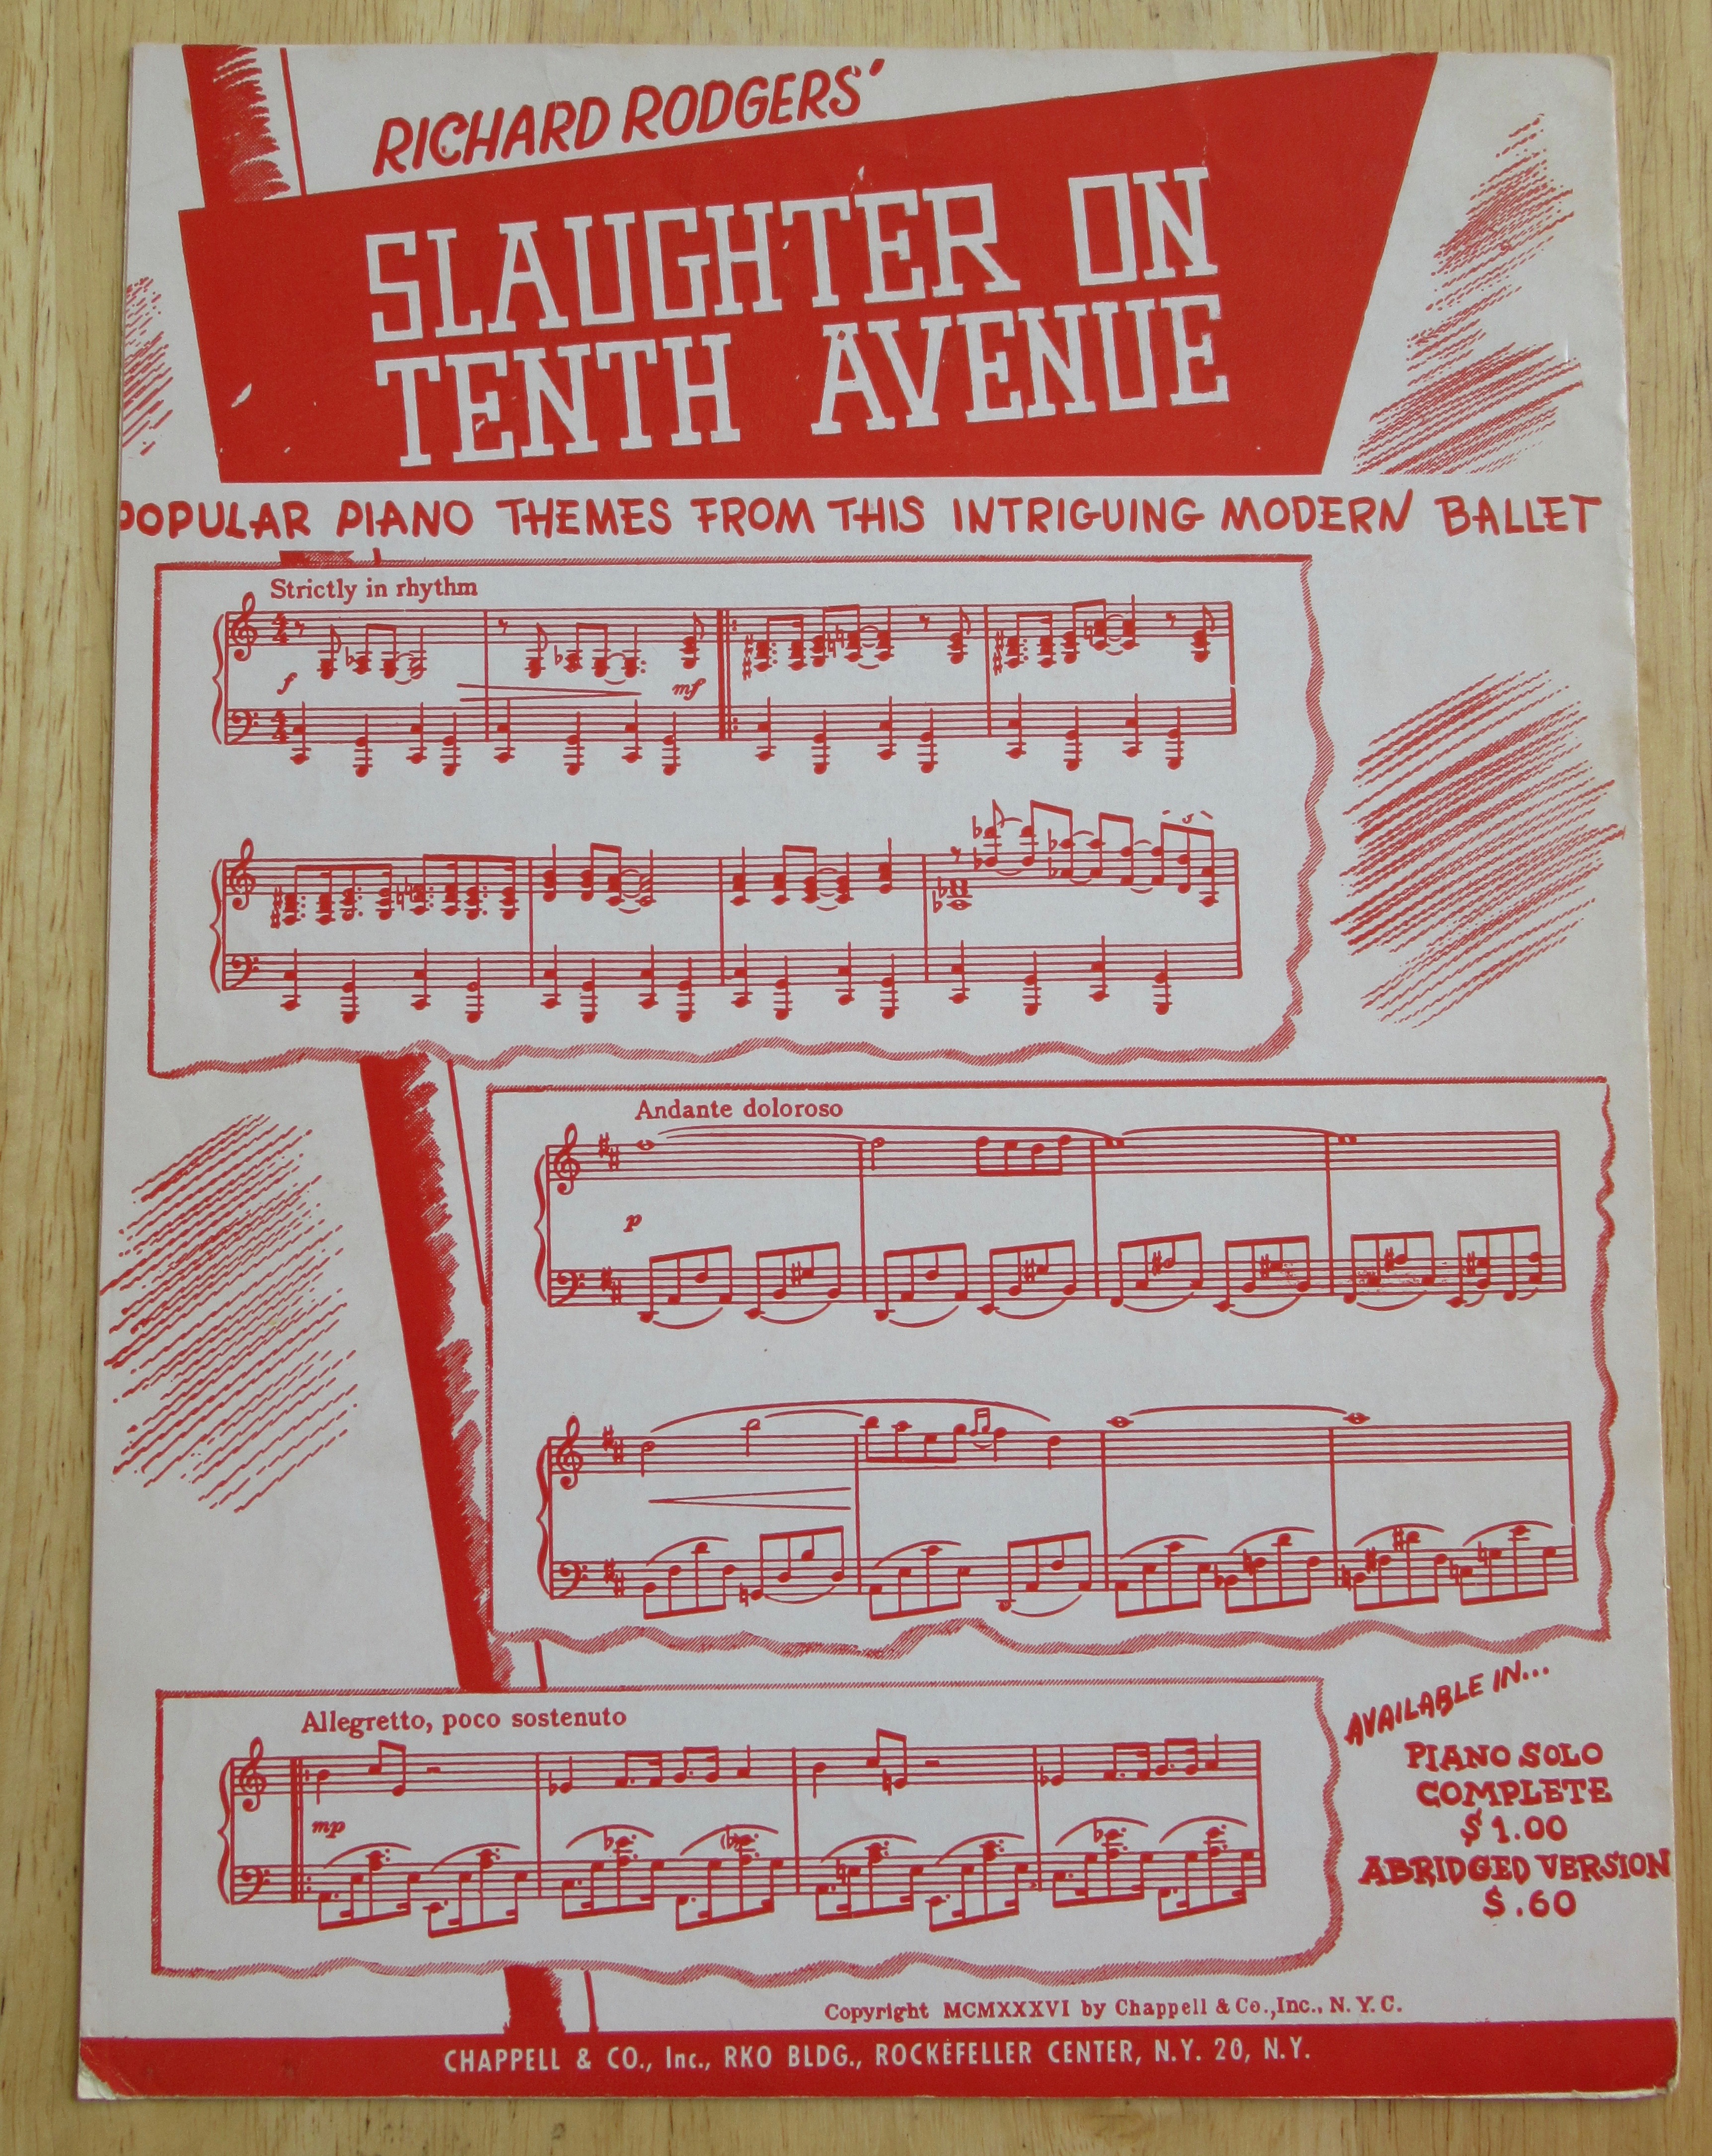 RICHARD RODGERS'
SLAUGHTER ON
TENTH AVENUE
POPULAR PIANO THEMES FROM THIS INTRIGUING MODERN BALLET
Strictly in rhythm
f
mf
Andante doloroso
p
Allegretto, poco sostenuto
mp
AVAILABLE IN...
PIANO SOLO
COMPLETE
$1.00
ABRIDGED VERSION
$.60
Copyright MCMXXXVI by Chappell & Co., Inc., N. Y. C.
CHAPPELL & CO., Inc., RKO BLDG., ROCKEFELLER CENTER, N.Y. 20, N.Y.